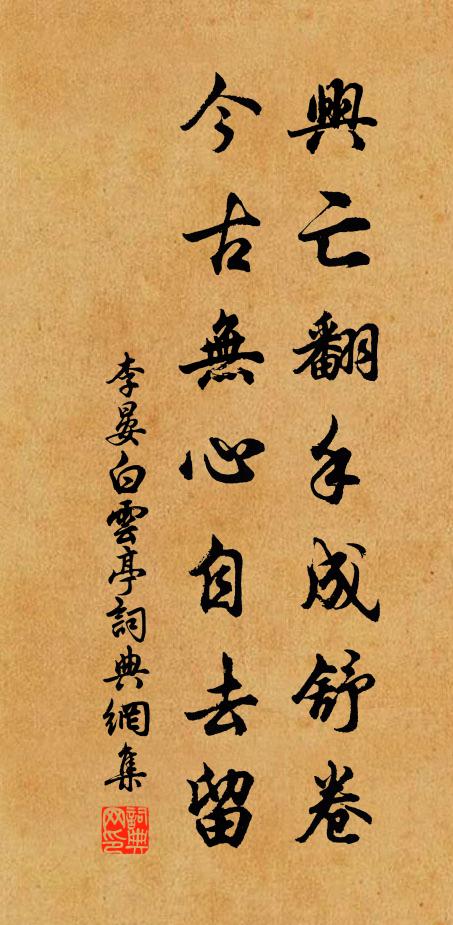 興亡翻手成舒卷
今古無心自去留
李晏白雲亭詞典網集
詞典网印